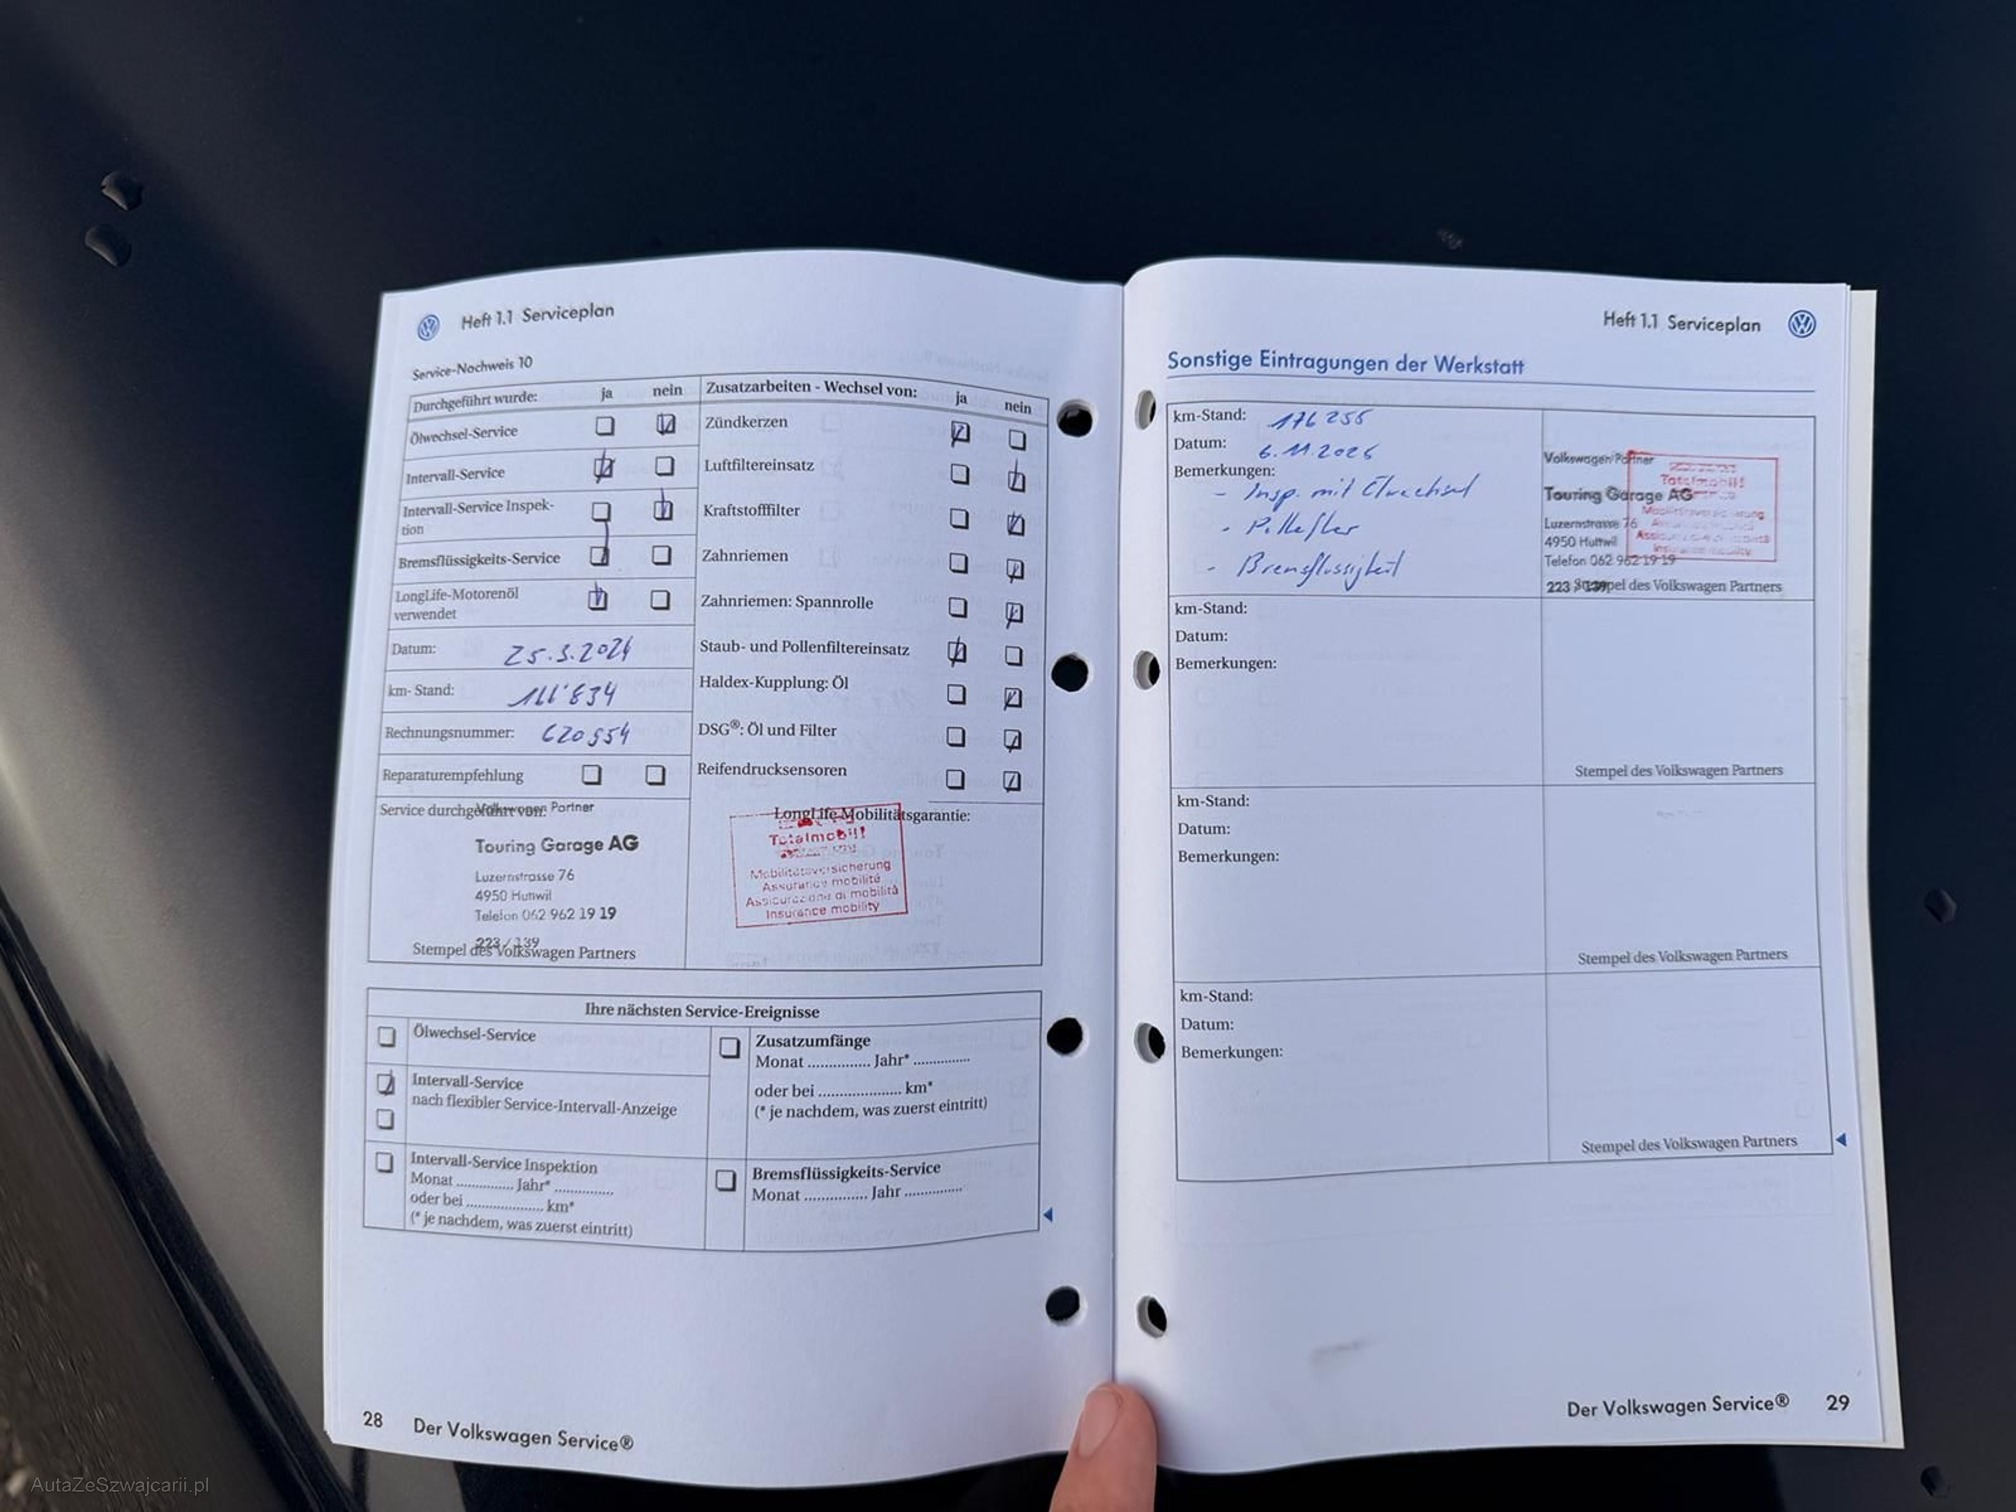 Heft 1.1 Serviceplan
Service-Nachweis 10
Durchgeführt wurde: ja nein
Ölwechsel-Service
Intervall-Service
Intervall-Service Inspek-
tion
Bremsflüssigkeits-Service
LongLife-Motorenöl
verwendet
Datum: 25.3.2024
km- Stand:
Rechnungsnummer:
Reparaturempfehlung
Service durchgeführt von:
Volkswagen Partner
Touring Garage AG
Luzernstrasse 76
4950 Huttwil
Telefon 062 962 19 19
223 / 139
Stempel des Volkswagen Partners
Zusatzarbeiten - Wechsel von: ja nein
Zündkerzen
Luftfiltereinsatz
Kraftstofffilter
Zahnriemen
Zahnriemen: Spannrolle
Staub- und Pollenfiltereinsatz
Haldex-Kupplung: Öl
DSG®: Öl und Filter
Reifendrucksensoren
LongLife Mobilitätsgarantie:
Totalmobil!
Mobilitätsversicherung
Assurance mobilité
Assicurazione di mobilità
Insurance mobility
Ihre nächsten Service-Ereignisse
Ölwechsel-Service
Intervall-Service
nach flexibler Service-Intervall-Anzeige
Intervall-Service Inspektion
Monat ............... Jahr* ...............
oder bei .................... km*
(* je nachdem, was zuerst eintritt)
Zusatzumfänge
Monat ................ Jahr* ..............
oder bei ..................... km*
(* je nachdem, was zuerst eintritt)
Bremsflüssigkeits-Service
Monat ................ Jahr ...............
28 Der Volkswagen Service®
Heft 1.1 Serviceplan
Sonstige Eintragungen der Werkstatt
km-Stand: 176 255
Datum:
Bemerkungen:
- Insp. mit Ölwechsel
- Bremsflüssigkeit
Volkswagen Partner
Touring Garage AG
Luzernstrasse 76
4950 Huttwil
Telefon 062 962 19 19
223 / 139
Stempel des Volkswagen Partners
Totalmobil!
Mobilitätsversicherung
Insurance mobility
km-Stand:
Datum:
Bemerkungen:
Stempel des Volkswagen Partners
km-Stand:
Datum:
Bemerkungen:
Stempel des Volkswagen Partners
km-Stand:
Datum:
Bemerkungen:
Stempel des Volkswagen Partners
Der Volkswagen Service® 29
AutaZeSzwajcarii.pl